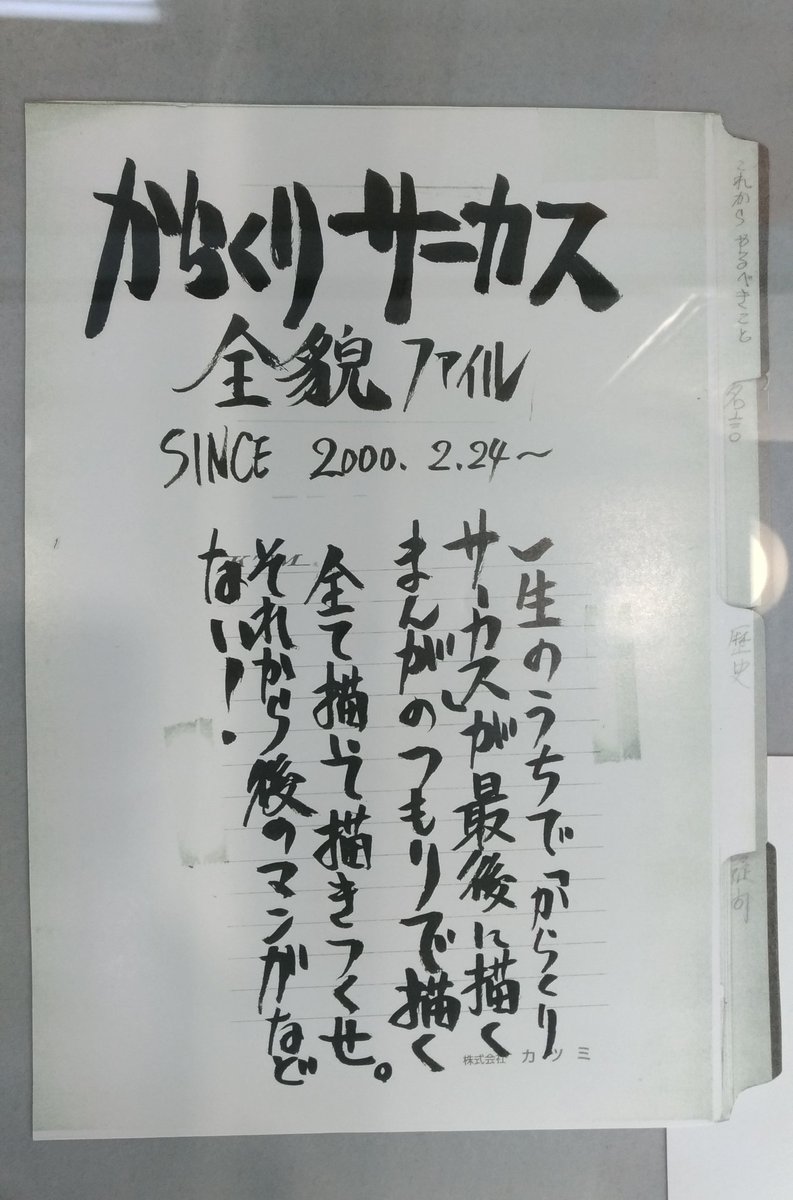 からくりサーカス
全貌ファイル
SINCE 2000.2.24~
一生のうちで「からくり
サーカス」が最後に描く
まんがのつもりで描く
全て描いて描きつくせ。
それから後のマンガなど
ない!
株式会社 カツミ
これから やるべきこと
名言
歴史